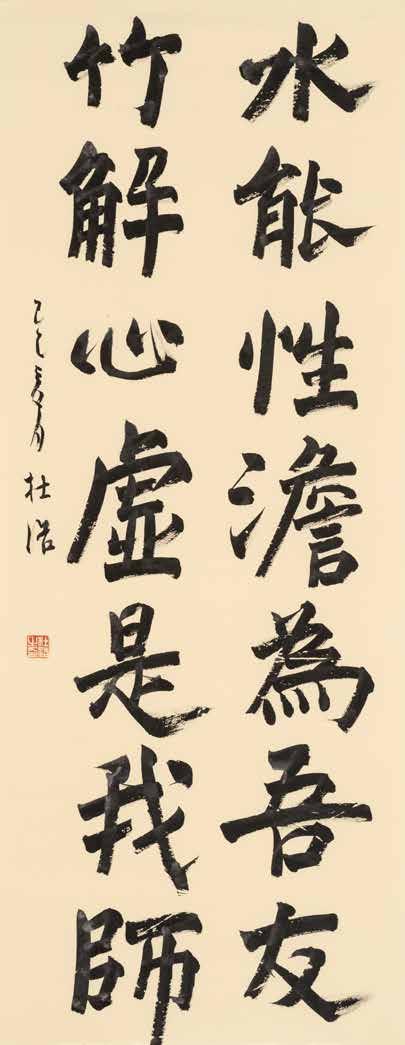 水能性澹為吾友
竹解心虛是我師
己巳夏月杜浩